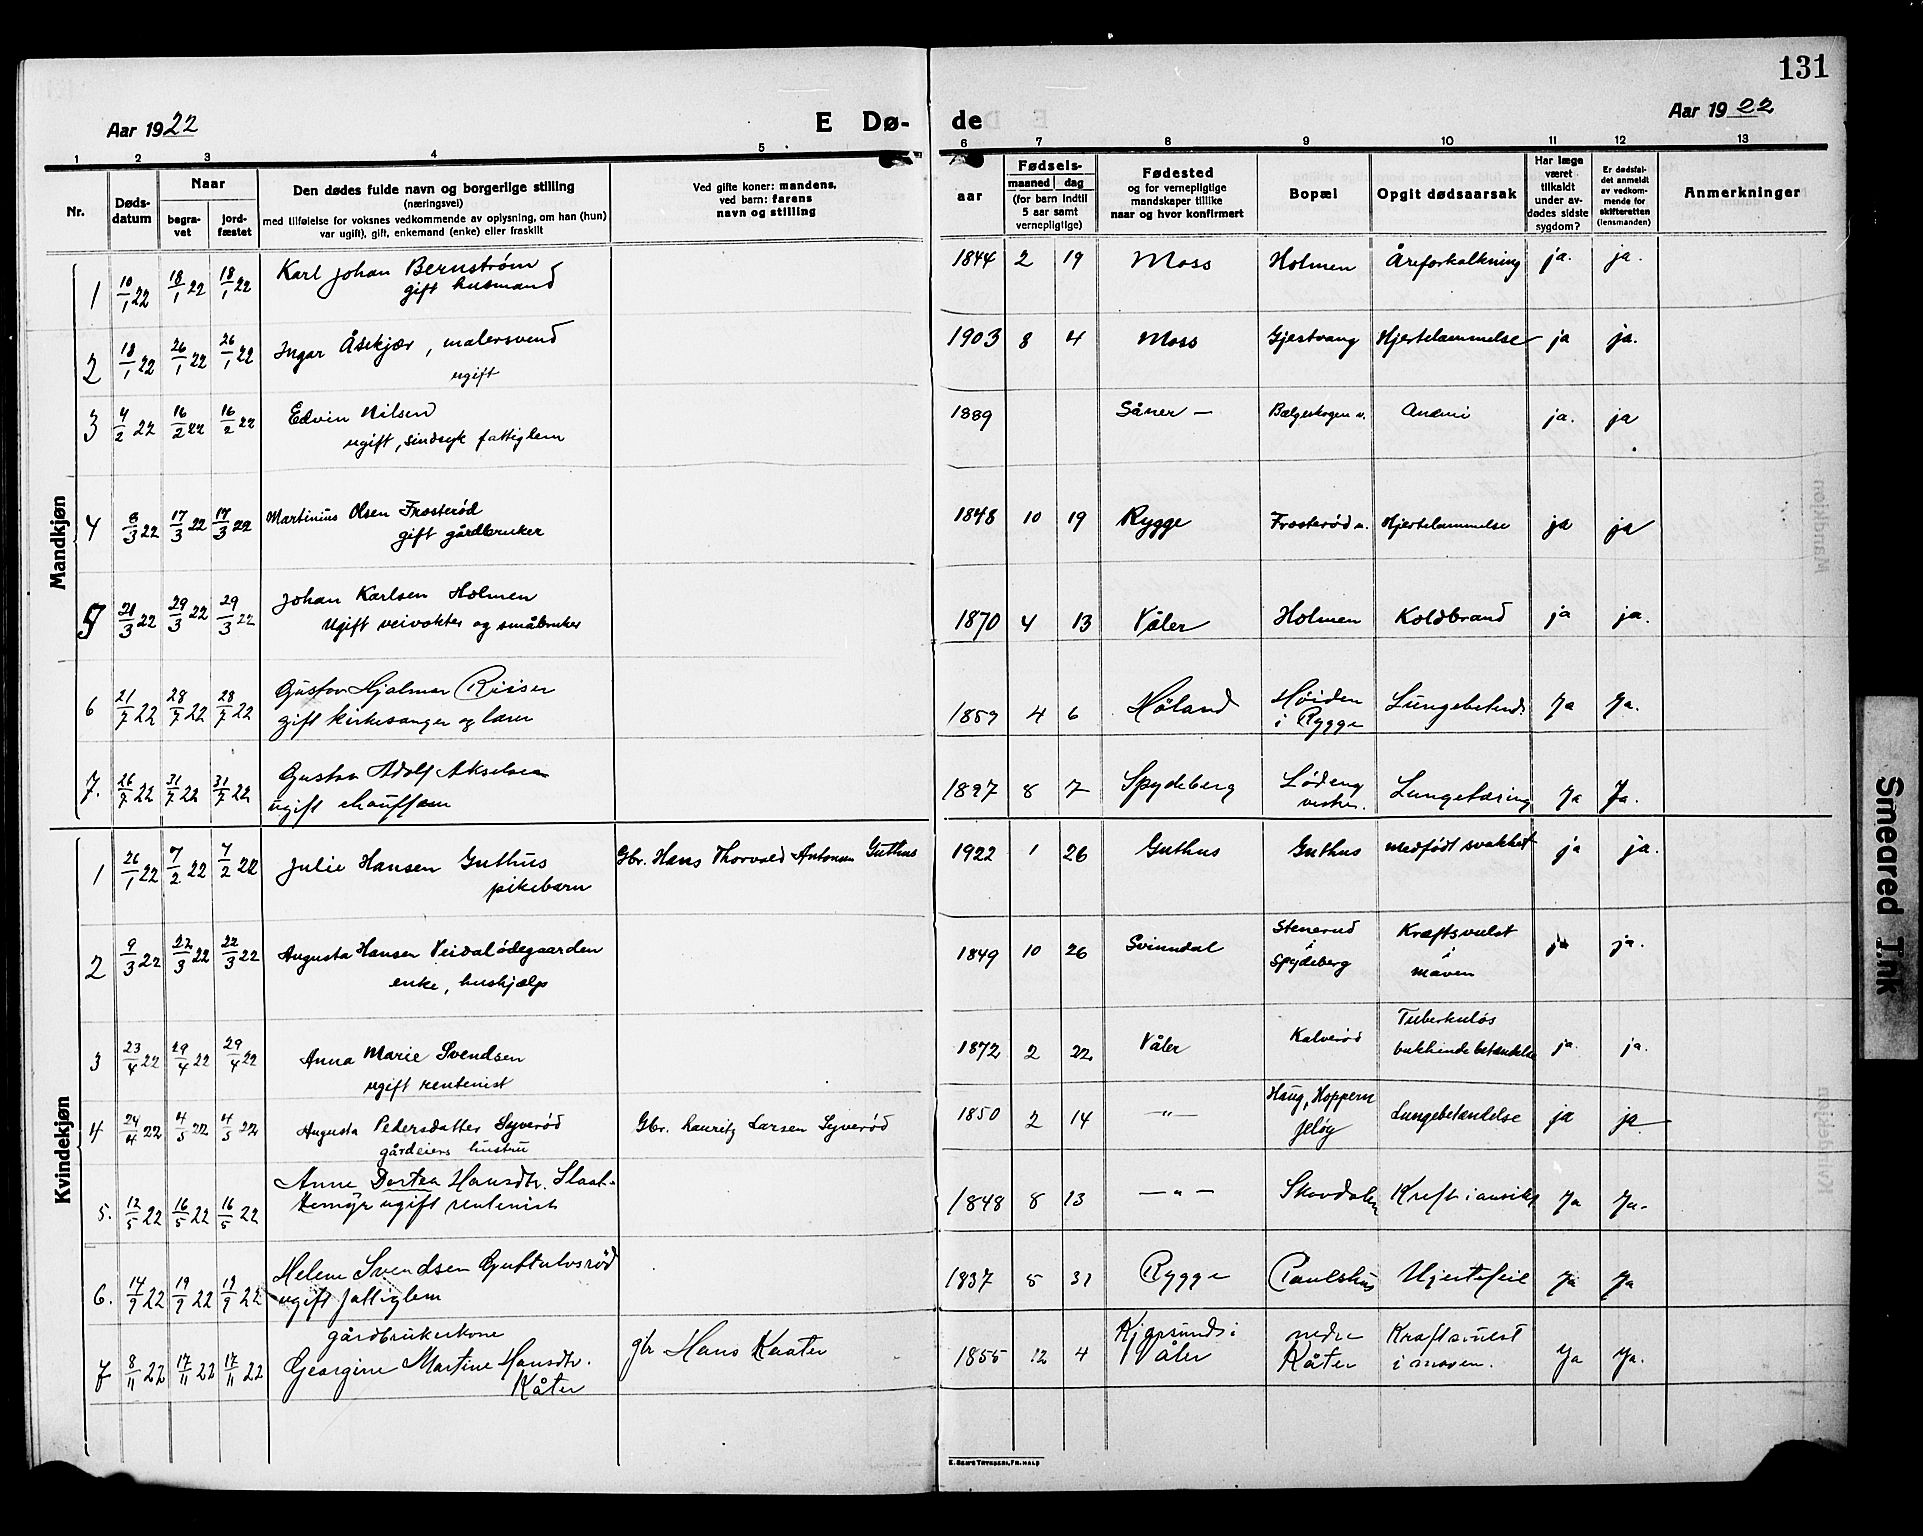 131
Aar 1922
E Dø-
de
Aar 1922
1 2 3 4 5 6 7 8 9 10 11 12 13
Nr.
Døds-
datum
Naar
begra-
vet
jord-
fæstet
Den dødes fulde navn og borgerlige stilling
(næringsvei)
med tilføielse for voksnes vedkommende av oplysning, om han (hun)
var ugift), gift, enkemand (enke) eller fraskilt
Ved gifte koner: mandens,
ved barn: farens
navn og stilling
Fødsels-
aar
maaned dag
(for barn indtil
5 aar samt
vernepligtige)
Fødested
og for vernepligtige
mandskaper tillike
naar og hvor konfirmert
Bopæl
Opgit dødsaarsak
Har læge
været
tilkaldt
under av-
dødes sidste
sygdom?
Er dødsfal-
det anmeldt
av vedkom-
mende for
skifteretten
(lensmanden)
Anmerkninger
Mandkjøn
1 10/1 22 18/1 22 18/1 22 Karl Johan Bernstrøm 1844 2 19 Moss Holmen Åreforkalkning ja. ja.
gift husmand
2 18/1 22 26/1 22 26/1 22 Ingar Åsekjær, malersvend 1903 8 4 Moss Gjestvang Hjertelammelse ja ja.
ugift
3 4/2 22 16/2 22 16/2 22 Edvin Nilsen 1889 Såner — Bølgeskogen n. Anæmi ja. ja
ugift, sindsyk fattiglem
4 8/3 22 17/3 22 17/3 22 Martinius Olsen Frosterød 1848 10 19 Rygge Frosterød n. Hjertelammelse ja ja
gift gårdbruker
5 21/3 22 29/3 22 29/3 22 Johan Karlsen Holmen 1870 4 13 Våler Holmen Koldbrand ja ja.
Ugift veivokter og småbruker
6 21/7 22 28/7 22 28/7 22 Gustav Hjalmar Riiser 1859 4 6 Høland Høiden Lungebetend. Ja Ja.
gift kirkesanger og lærer i Rygge
7. 26/7 22 31/7 22 31/7 22 Gustav Adolf Akselsen 1897 8 7 Spydeberg Lødeng Lungetæring Ja Ja.
ugift chauffør vestre.
Kvindekjøn
1 26/1 22 7/2 22 7/2 22 Julie Hansen Guthus Gbr. Hans Thorvald Antonsen Guthus 1922 1 26 Guthus Guthus medfødt svakhet ja ja.
pikebarn
2 9/3 22 22/3 22 22/3 22 Augusta Hansen Veidalødegaarden 1849 10 26 Svinndal Stenerud i Spydeberg Kræftsvulst i maven ja ja.
enke, hushjælp
3 23/4 22 29/4 22 29/4 22 Anna Marie Svendsen 1872 2 22 Våler Kalverød Tuberkuløs bukhindebetændelse ja. ja.
ugift rentenist
4 24/4 22 4/5 22 4/5 22 Augusta Pedersdatter Syverød Gbr. Lauritz Larsen Syverød 1850 2 14 —"— Haug, Hoppern Jeløy Lungebetændelse ja ja
gårdeiers hustru
5. 12/5 22 16/5 22 16/5 22 Anne Dortea Hansdtr. Slaat- 1848 8 13 —"— Skovdalen Kreft i ansikt Ja Ja.
temyr ugift rentenist
6. 14/9 22 19/9 22 19/9 22 Helene Svendsen 1837 8 31 Rygge Paulshus Hjertefeil Ja Ja
ugift fattiglem
gårdbrukerkone
7 8/11 22 17/11 22 17/11 22 Georgine Martine Hansdtr. gbr Hans Kaater 1855 12 4 Våler nedre Kåter Kræftsvulst i maven. Ja Ja.
Kåter
Smeared Ink